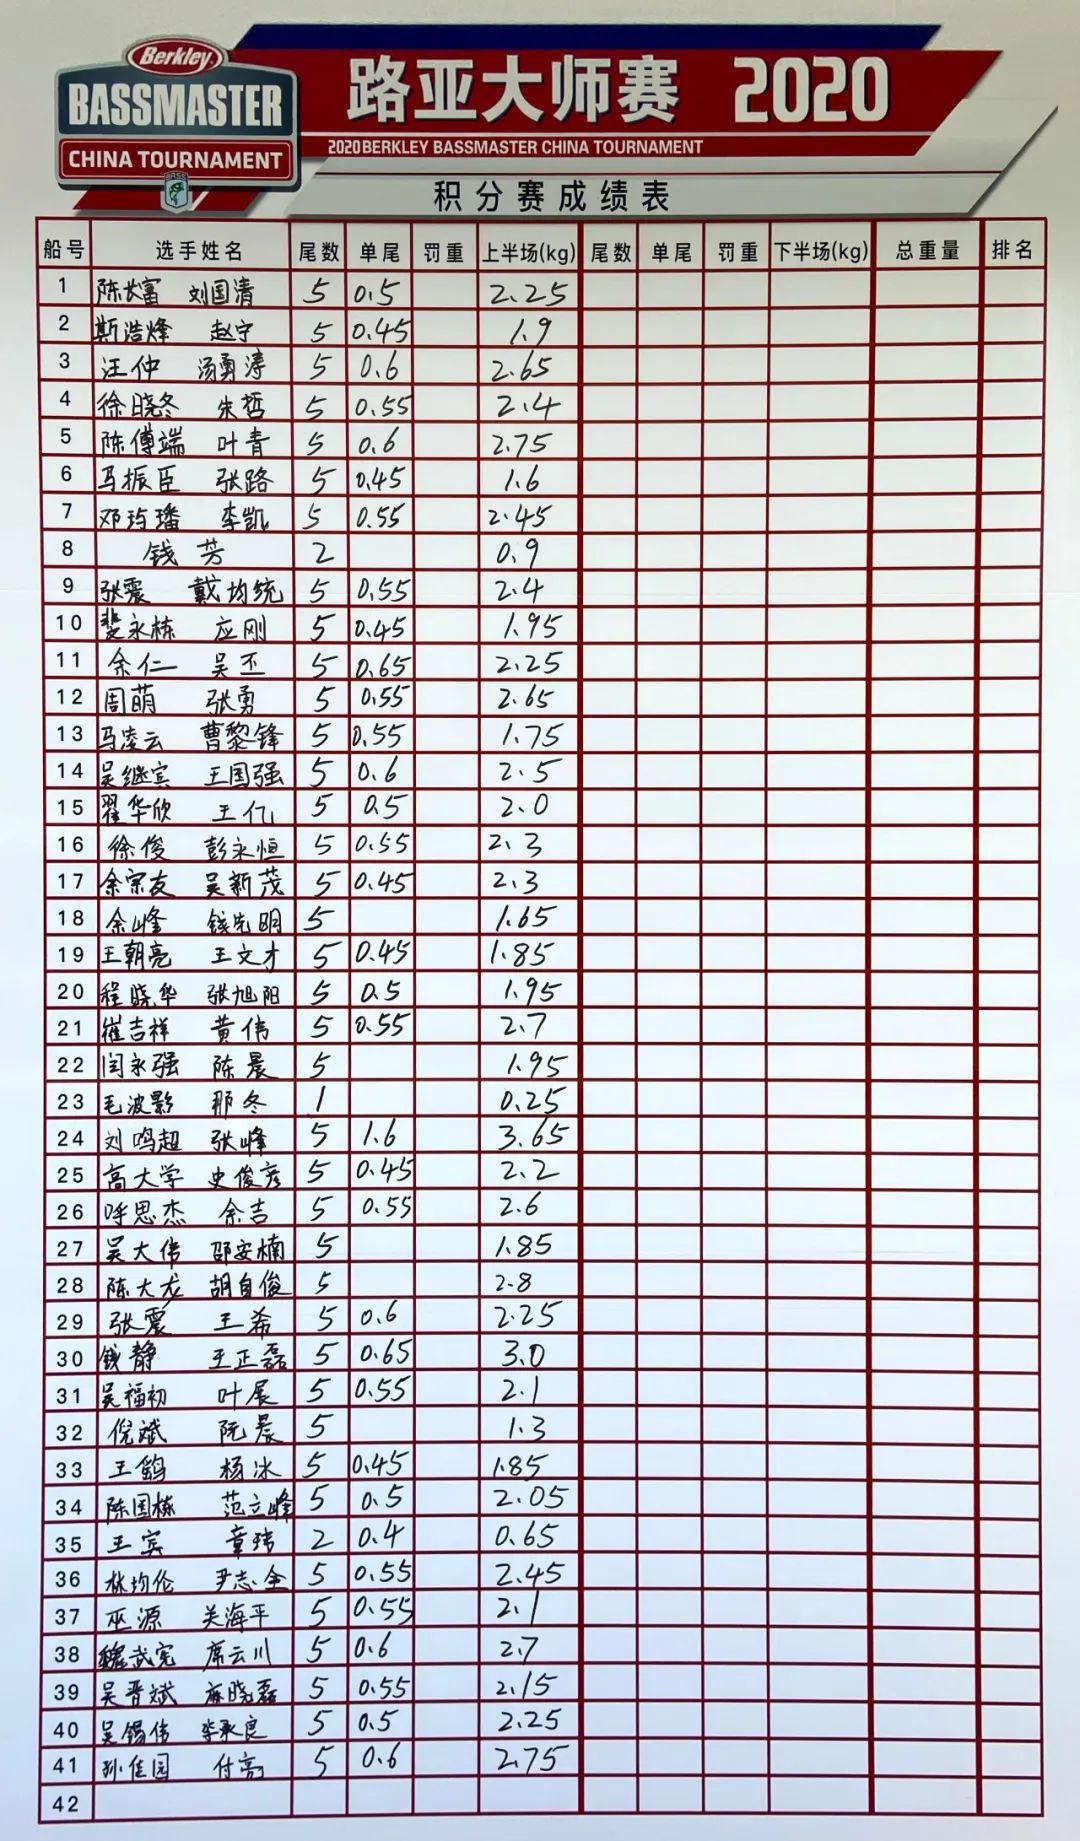 Berkley
BASSMASTER
CHINA TOURNAMENT
路亚大师赛 2020
2020 BERKLEY BASSMASTER CHINA TOURNAMENT
积分赛成绩表
船号 选手姓名 尾数 单尾 罚重 上半场(kg) 尾数 单尾 罚重 下半场(kg) 总重量 排名
1 陈大富 刘国清 5 0.5 2.25
2 斯浩烽 赵宁 5 0.45 1.9
3 汪仲 汤勇涛 5 0.6 2.65
4 徐晓冬 朱哲 5 0.55 2.4
5 陈傅端 叶青 5 0.6 2.75
6 马振臣 张路 5 0.45 1.6
7 邓玙璠 李凯 5 0.55 2.45
8 钱芳 2 0.9
9 张震 戴均统 5 0.55 2.4
10 娄永栋 应刚 5 0.45 1.95
11 余仁 吴丕 5 0.65 2.25
12 周萌 张勇 5 0.55 2.65
13 马凌云 曹黎锋 5 0.55 1.75
14 吴继宾 王国强 5 0.6 2.5
15 翟华欣 王亿 5 0.5 2.0
16 徐俊 彭永恒 5 0.55 2.3
17 余宗友 吴新茂 5 0.45 2.3
18 余峰 钱先明 5 1.65
19 王朝亮 王文才 5 0.45 1.85
20 程晓华 张旭阳 5 0.5 1.95
21 崔吉祥 黄伟 5 0.55 2.7
22 闫永强 陈晨 5 1.95
23 毛波影 那冬 1 0.25
24 刘鸣超 张峰 5 1.6 3.65
25 高大学 史俊彦 5 0.45 2.2
26 呼思杰 余吉 5 0.55 2.6
27 吴大伟 邵安楠 5 1.85
28 陈大龙 胡自俊 5 2.8
29 张震 王希 5 0.6 2.25
30 钱静 王正磊 5 0.65 3.0
31 吴福初 叶展 5 0.55 2.1
32 倪斌 阮晨 5 1.3
33 王鹞 杨冰 5 0.45 1.85
34 陈国栋 范立峰 5 0.5 2.05
35 王宾 章玮 2 0.4 0.65
36 林均伦 尹志全 5 0.55 2.45
37 巫源 关海平 5 0.55 2.1
38 魏武宪 席云川 5 0.6 2.7
39 吴晋斌 麻晓磊 5 0.55 2.15
40 吴锡伟 李承良 5 0.5 2.25
41 孙佳园 付亮 5 0.6 2.75
42